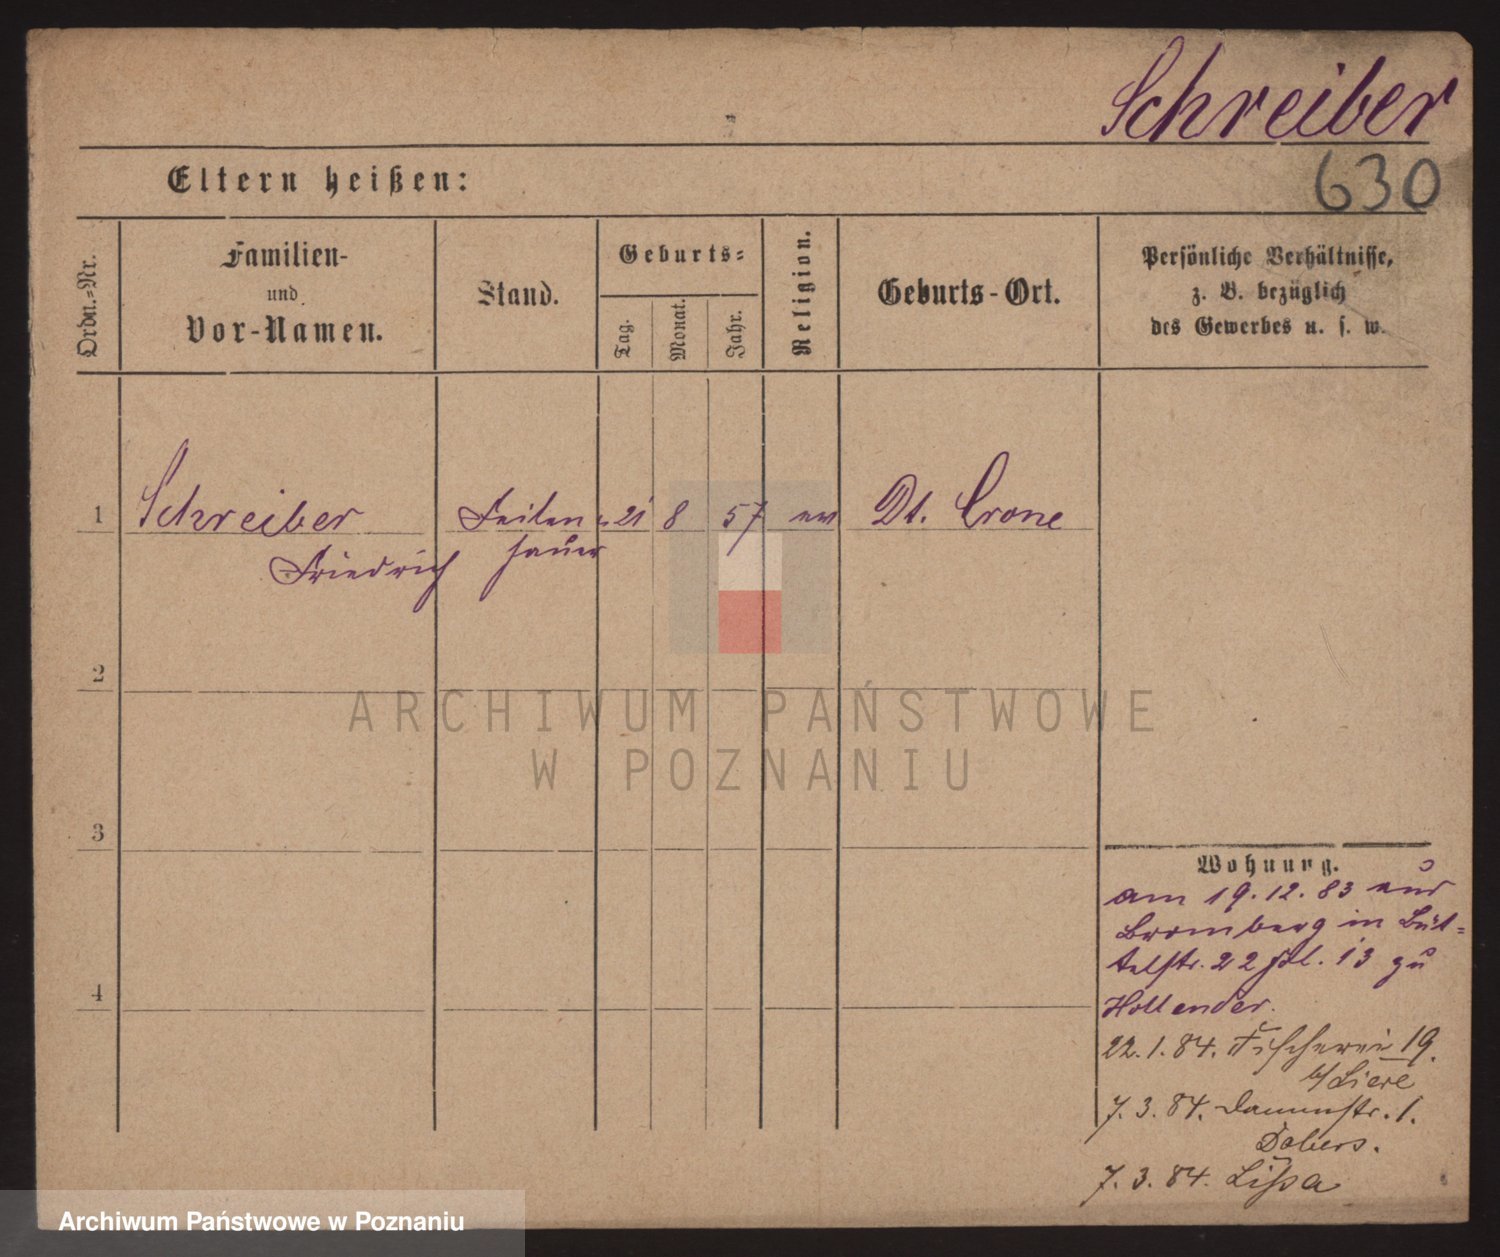 Schreiber
630
Eltern heißen:
Ordn.-Nr.
Familien-
und
Vor-Namen.
Stand.
Geburts-
Tag.
Monat.
Jahr.
Religion.
Geburts-Ort.
Persönliche Verhältnisse,
z. B. bezüglich
des Gewerbes u. s. w.
1 Schreiber Feilen- 21 8 57 ev Dt. Crone
Friedrich hauer
2
3
4
Wohnung.
am 19.12.83 aus
Bromberg in Büt-
telstr. 22 13 zu
Hollender.
22.1.84. Fischerei 19.
b/
7.3.84. Dammstr. 1.
Dobers.
7.3.84. Lissa
ARCHIWUM PAŃSTWOWE
W POZNANIU
Archiwum Państwowe w Poznaniu